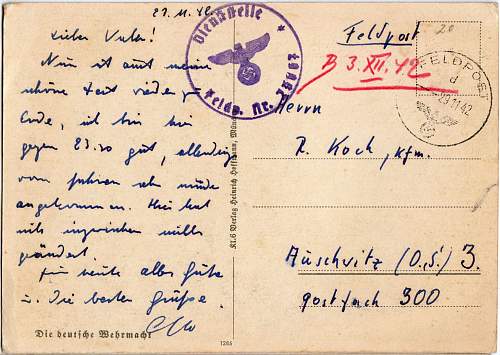 27.11.42
Lieber Vater!
Nun ist auch meine
schöne Zeit wieder zu
Ende, ich bin hier
gegen 23.30 gut, allerdings
vom Fahren sehr müde
angekommen. Hier hat
sich inzwischen nichts
geändert.
Für heute alles Gute
u. die besten Grüße.
Otto
Die deutsche Wehrmacht
1285
Kl.6 Verlag Heinrich Hoffmann, Mün
Dienststelle
Feldp. Nr.
Feldpost
20
B 3.XII.42
FELDPOST
d
29.11.42
Herrn
R. Koch, Kfm.
Auschwitz (O.S.) 3.
Postfach 300